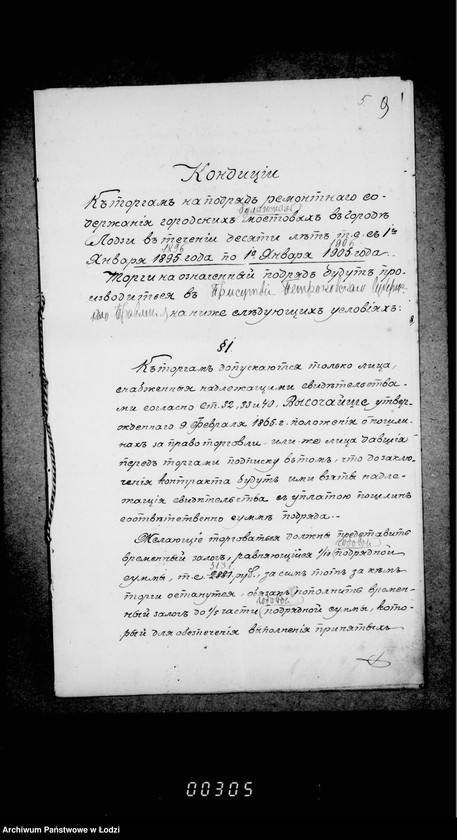 5 9
Кондиціи
Къ торгамъ на подрядъ ремонтнаго со-
булыжныхъ
держанія городскихъ мостовыхъ въ городѣ
Лодзи въ теченіи десяти лѣтъ, т.е. съ 1го
1896 1906
Января 1895 года по 1е Января 1905 года.
Торги на означенный подрядъ будутъ про-
изводиться въ Присутствіи Петроковскаго Губерн-
скаго Правленія, на ниже слѣдующихъ условіяхъ:
§1.
Къ торгамъ допускаются только лица,
снабженныя надлежащими свидѣтельства-
ми согласно Ст. 32, 33 и 40, Высочайше утвер-
жденнаго 9 Февраля 1865 г. положенія о пошли-
нахъ за право торговли, или же лица давшія
передъ торгами подписку въ томъ, что до заклю-
ченія контракта будутъ ими взяты надле-
жащія свидѣтельства съ уплатою пошлинъ
соотвѣтственно суммѣ подряда.
Желающіе торговаться должны представить
годовой
временный залогъ, равняющійся 1/10 подрядной
3131
суммы, т.е. руб., за симъ тотъ, за кѣмъ
торги останутся, обязанъ пополнить времен-
годовой
ный залогъ до 1/5 части подрядной суммы, кото-
рый для обезпеченія выполненія принятыхъ
00305
Archiwum Państwowe w Łodzi